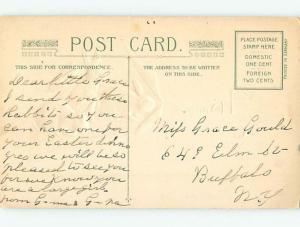 POST CARD.
THIS SIDE FOR CORRESPONDENCE.
THE ADDRESS TO BE WRITTEN
ON THIS SIDE.
PLACE POSTAGE
STAMP HERE
DOMESTIC
ONE CENT
FOREIGN
TWO CENTS
PRINTED IN GERMANY
Dear little Grace
I send you these
Rabbits so you
can have one for
your Easter dinner
yes we will be so
pleased to see you
know you
are a large girl
from
Miss Grace Gould
648 Elm St
Buffalo
N.Y